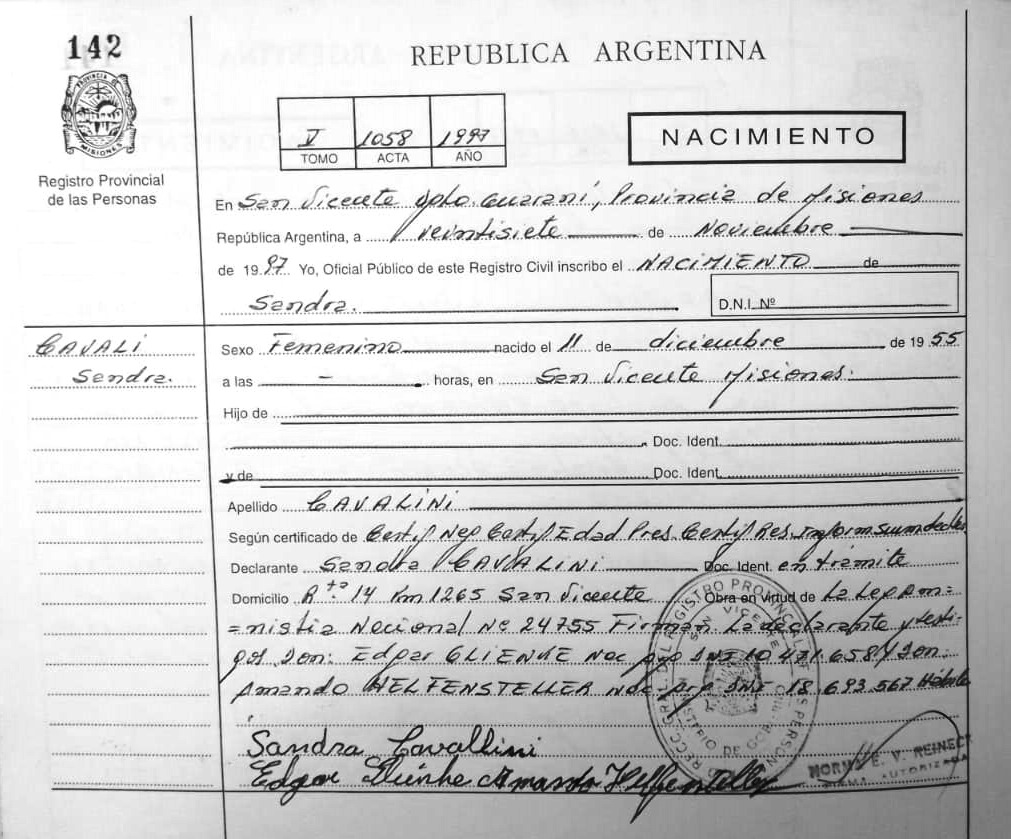 142
REPUBLICA ARGENTINA
PROVINCIA DE MISIONES
V 1058 1997
TOMO ACTA AÑO
NACIMIENTO
Registro Provincial
de las Personas
En San Vicente Dpto. Guaraní, Provincia de Misiones
República Argentina, a veintisiete de Noviembre
de 1997. Yo, Oficial Público de este Registro Civil inscribo el NACIMIENTO de
Sandra.
D.N.I. Nº
CAVALI
Sandra.
Sexo Femenino nacido el 11 de diciembre de 1955
a las - horas, en San Vicente Misiones.
Hijo de
Doc. Ident.
y de Doc. Ident.
Apellido CAVALINI
Según certificado de Certif Neg Certif Edad Pres. Certif Res. Inform sum
Declarante Sandra CAVALINI Doc. Ident. en trámite
Domicilio R ta. 14 Km 1265 San Vicente Obra en virtud de La Ley Am=
=nistia Nacional Nº 24755 Firman La declarante y testi-
gos Don: Edgar Nac DNI 10 471.658 y Don:
Amando HELFENSTELLER Nac DNI 18.693.567 Hábile
Sandra Cavallini
Edgar Amando
NORMA E. V. REINECK
FIRMA AUTORIZADA